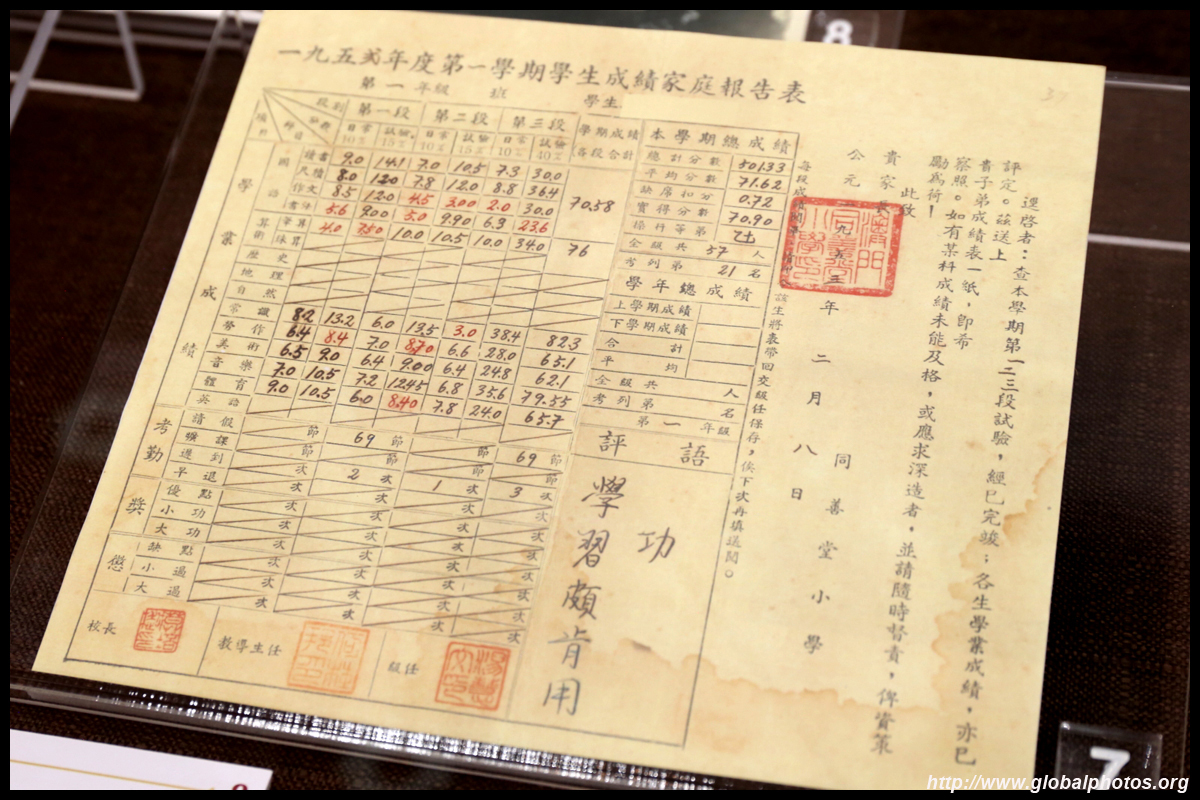 8
一九五弍年度第一學期學生成績家庭報告表
第一年級 班 學生
段別 第一段 第二段 第三段 學期成績各段合計
日常10% 試驗15% 日常10% 試驗15% 日常10% 試驗40%
學業成績
國語 讀書 9.0 14.1 7.0 10.5 7.3 30.0
尺牘 8.0 12.0 7.8 12.0 8.8 36.4
作文 8.5 12.0 4.5 3.00 2.0 30.0
書法 5.6 9.00 5.0 9.90 6.3 23.6
70.58
算術 筆算 4.0 7.50 10.0 10.5 10.0 34.0 76
珠算
歷史
地理
自然
常識 8.2 13.2 6.0 13.5 3.0 38.4 82.3
勞作 6.4 8.4 7.0 8.70 6.6 28.0 65.1
美術 6.5 9.0 6.4 9.00 6.4 24.8 62.1
音樂 7.0 10.5 7.2 12.45 6.8 35.6 79.55
體育 9.0 10.5 6.0 8.40 7.8 24.0 65.7
英語
考勤
請假 節 69 節 節 69 節
曠課 節 節 節 節
遲到 次 2 次 1 次 3 次
早退 次 次 次 次
獎懲
優點 次 次 次 次
小功 次 次 次 次
大功 次 次 次 次
缺點 次 次 次 次
小過 次 次 次 次
大過 次 次 次 次
校長
教導主任
級任
本學期總成績
總計分數 501.33
平均分數 71.62
缺席扣分 0.72
實得分數 70.90
操行等第 乙
全級共 57 人
考列第 21 名
學年總成績
上學期成績
下學期成績
合計
平均
全級共 人
考列第 名
第一年級
評語
功
學習頗肯用
逕啓者：查本學期第一二三段試驗，經已完竣；各生學業成績，亦已
評定。茲送上
貴子弟成績表一紙，卽希
察照。如有某科成績未能及格，或應求深造者，並請隨時督責，俾資策
勵爲荷！
此致
貴家長
同善堂小學
公元一九五三年二月八日
該生將表帶回交級任保存，俟下次再填送閱。
7
http://www.globalphotos.org